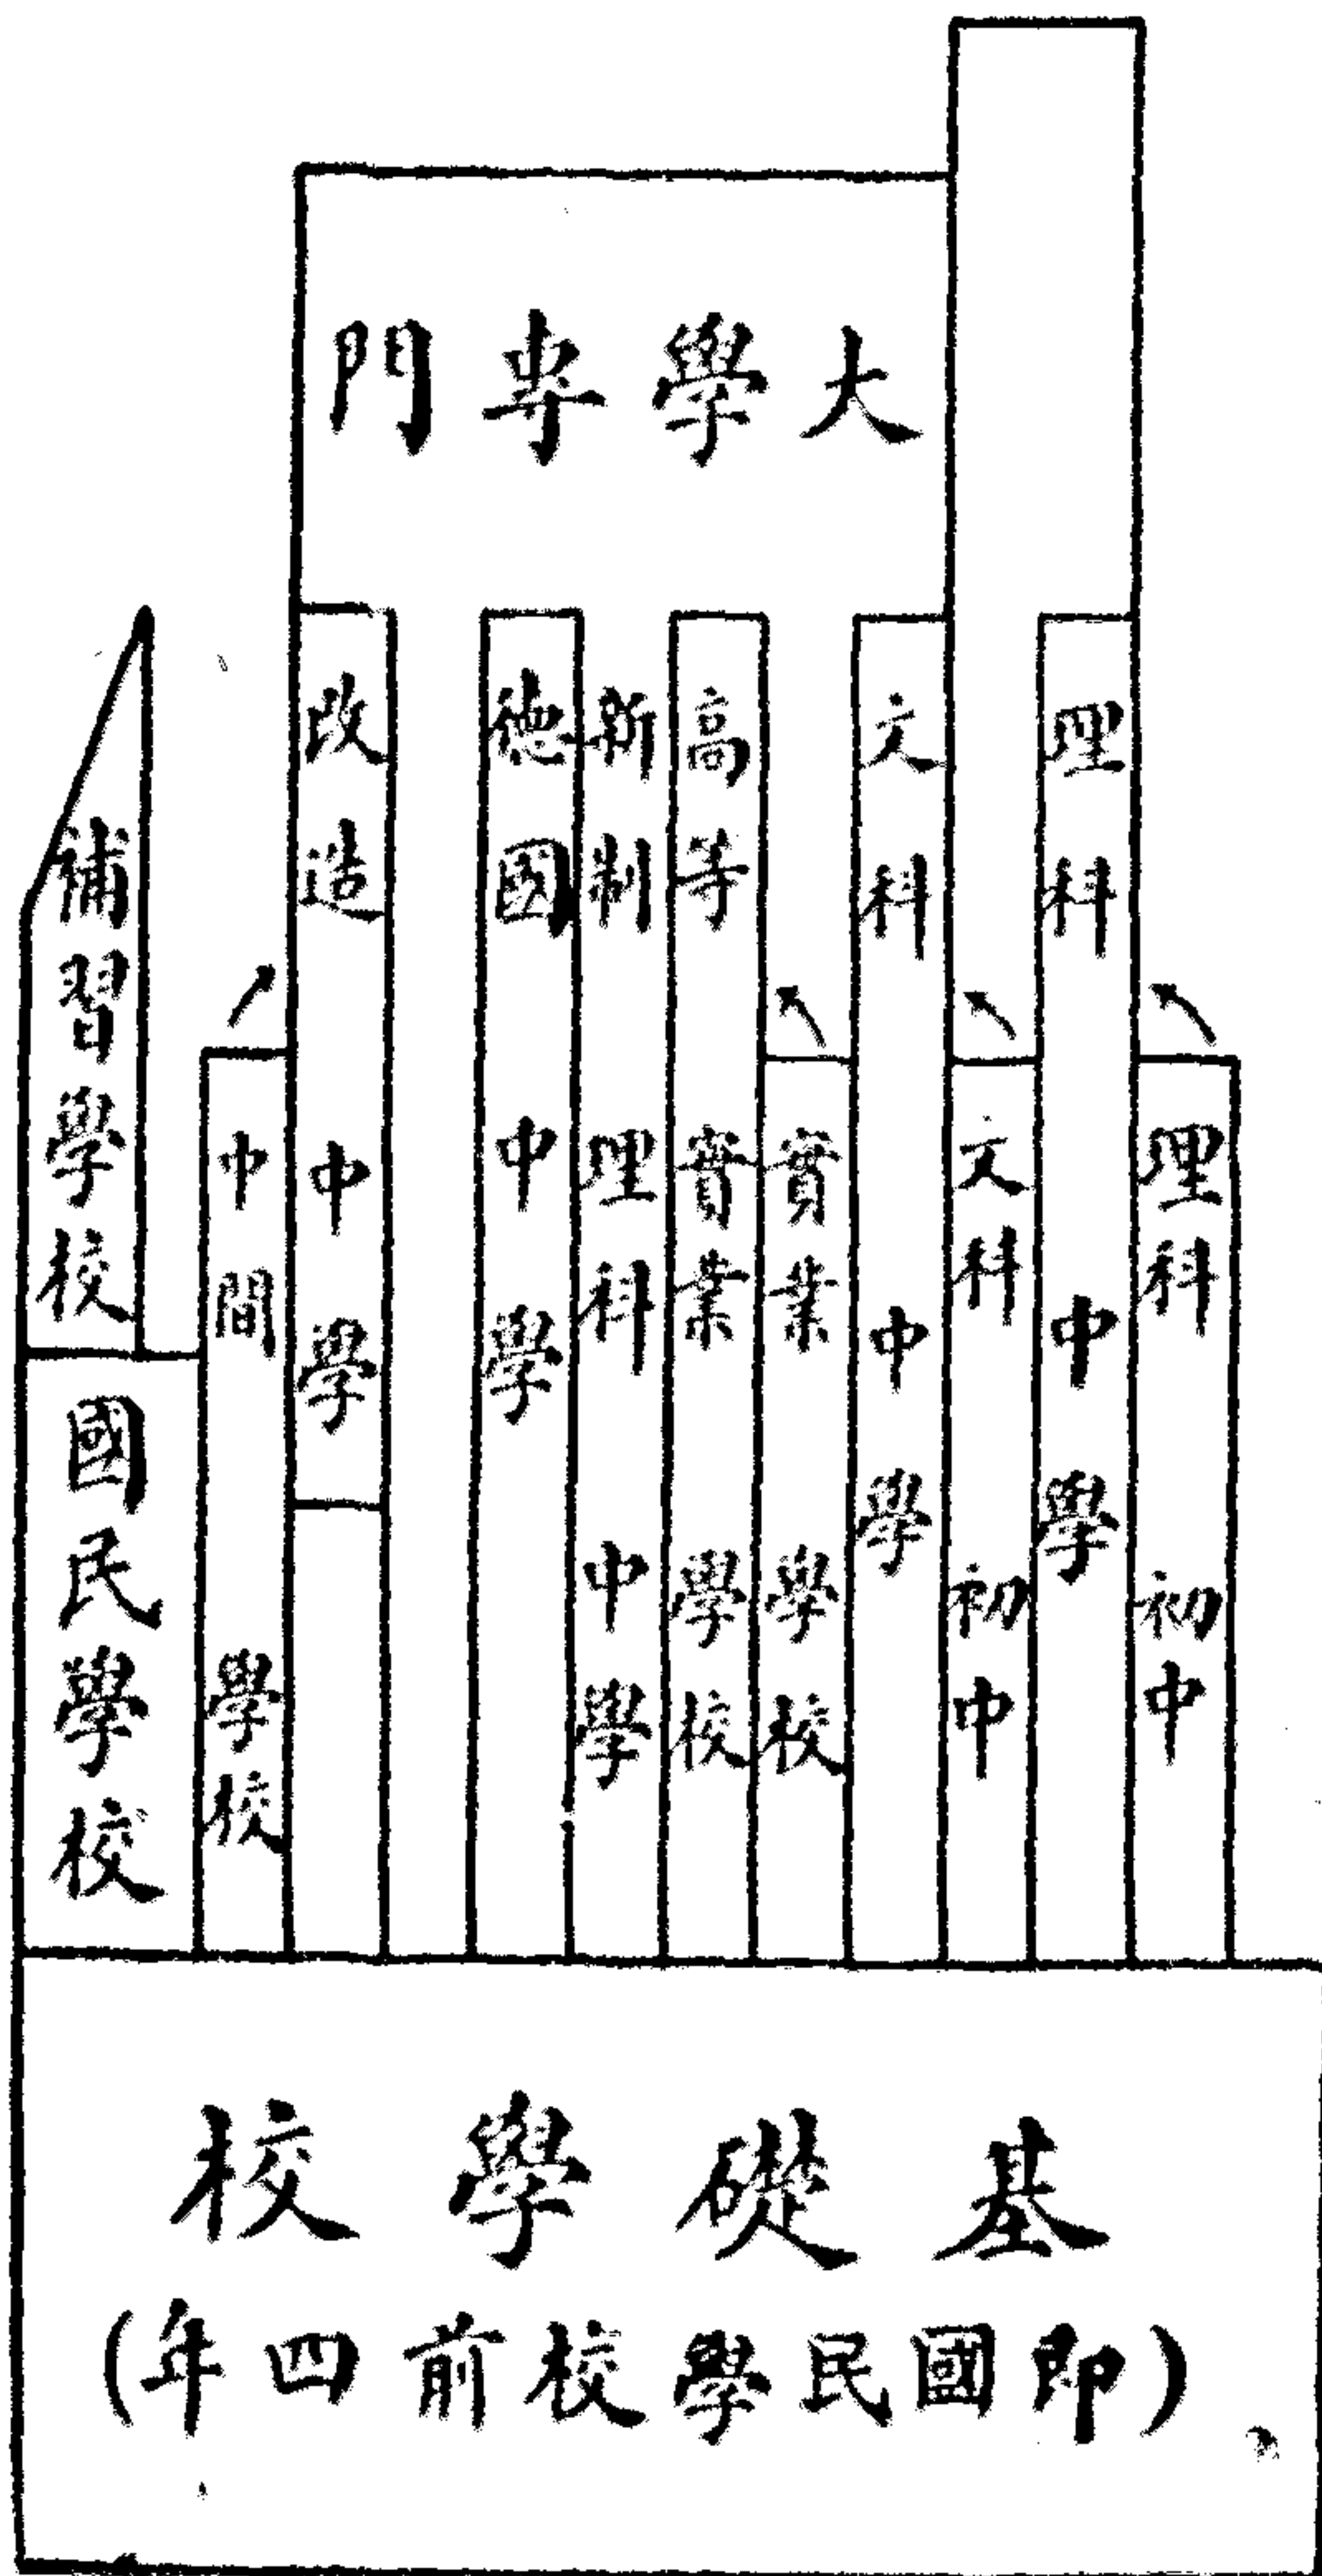 大學專門
理科中學
理科初中
文科中學
文科初中
高等實業學校
實業學校
新制理科中學
德國中學
改造中學
中間學校
補習學校
國民學校
基礎學校
(即國民學校前四年)